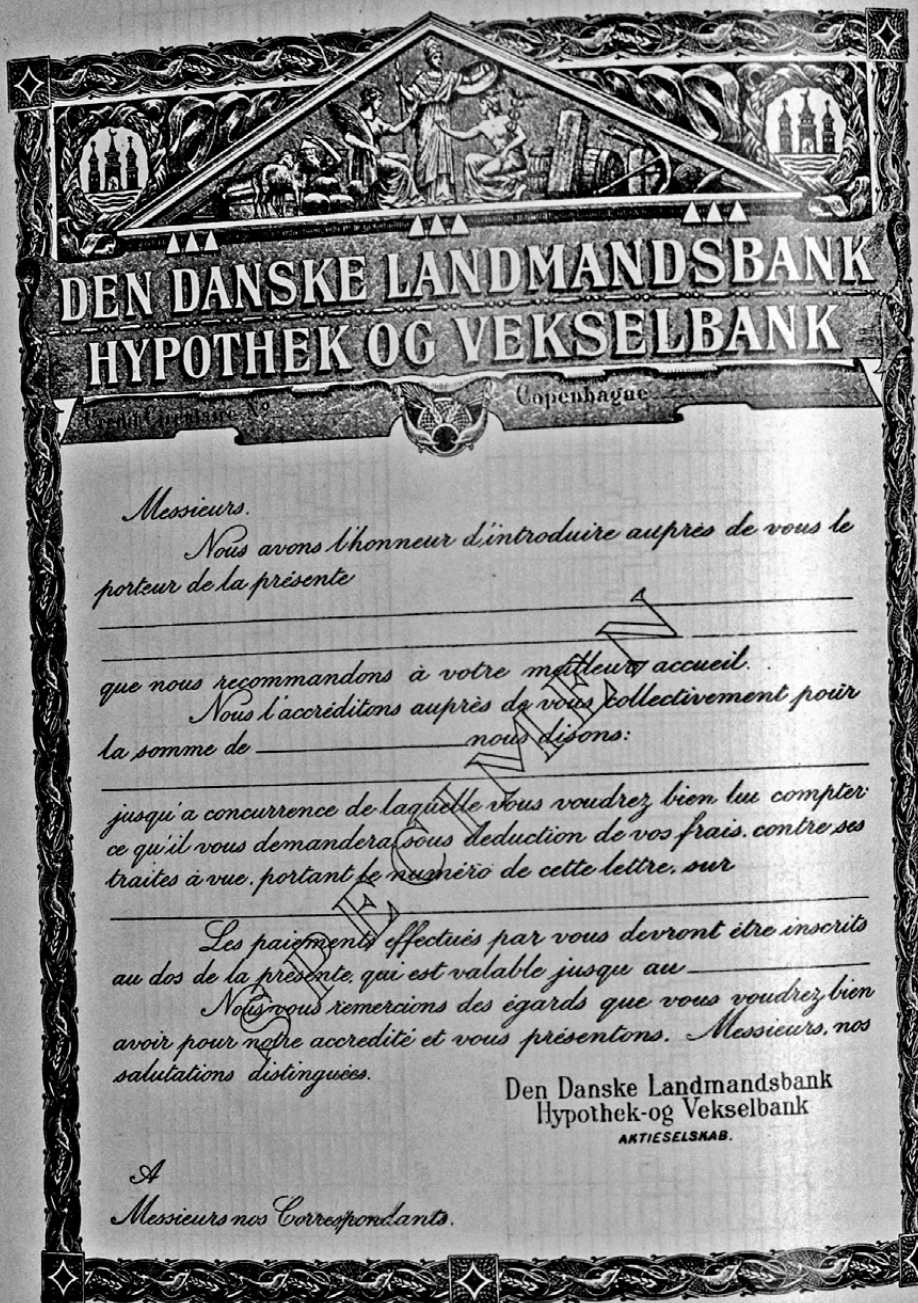 DEN DANSKE LANDMANDSBANK
HYPOTHEK OG VEKSELBANK
Crédit Circulaire Nº
Copenhague
Messieurs.
Nous avons l'honneur d'introduire auprès de vous le
porteur de la présente
que nous recommandons à votre meilleur accueil.
Nous l'accréditons auprès de vous collectivement pour
la somme de nous disons:
jusqu'a concurrence de laquelle vous voudrez bien lui compter
ce qu'il vous demandera sous deduction de vos frais. contre ses
traites à vue. portant le numéro de cette lettre. sur
Les paiements effectués par vous devront être inscrits
au dos de la présente. qui est valable jusque au
Nous vous remercions des égards que vous voudrez bien
avoir pour notre accredité et vous présentons. Messieurs, nos
salutations distinguées.
SPECIMEN
Den Danske Landmandsbank
Hypothek-og Vekselbank
AKTIESELSKAB.
A
Messieurs nos Correspondants.